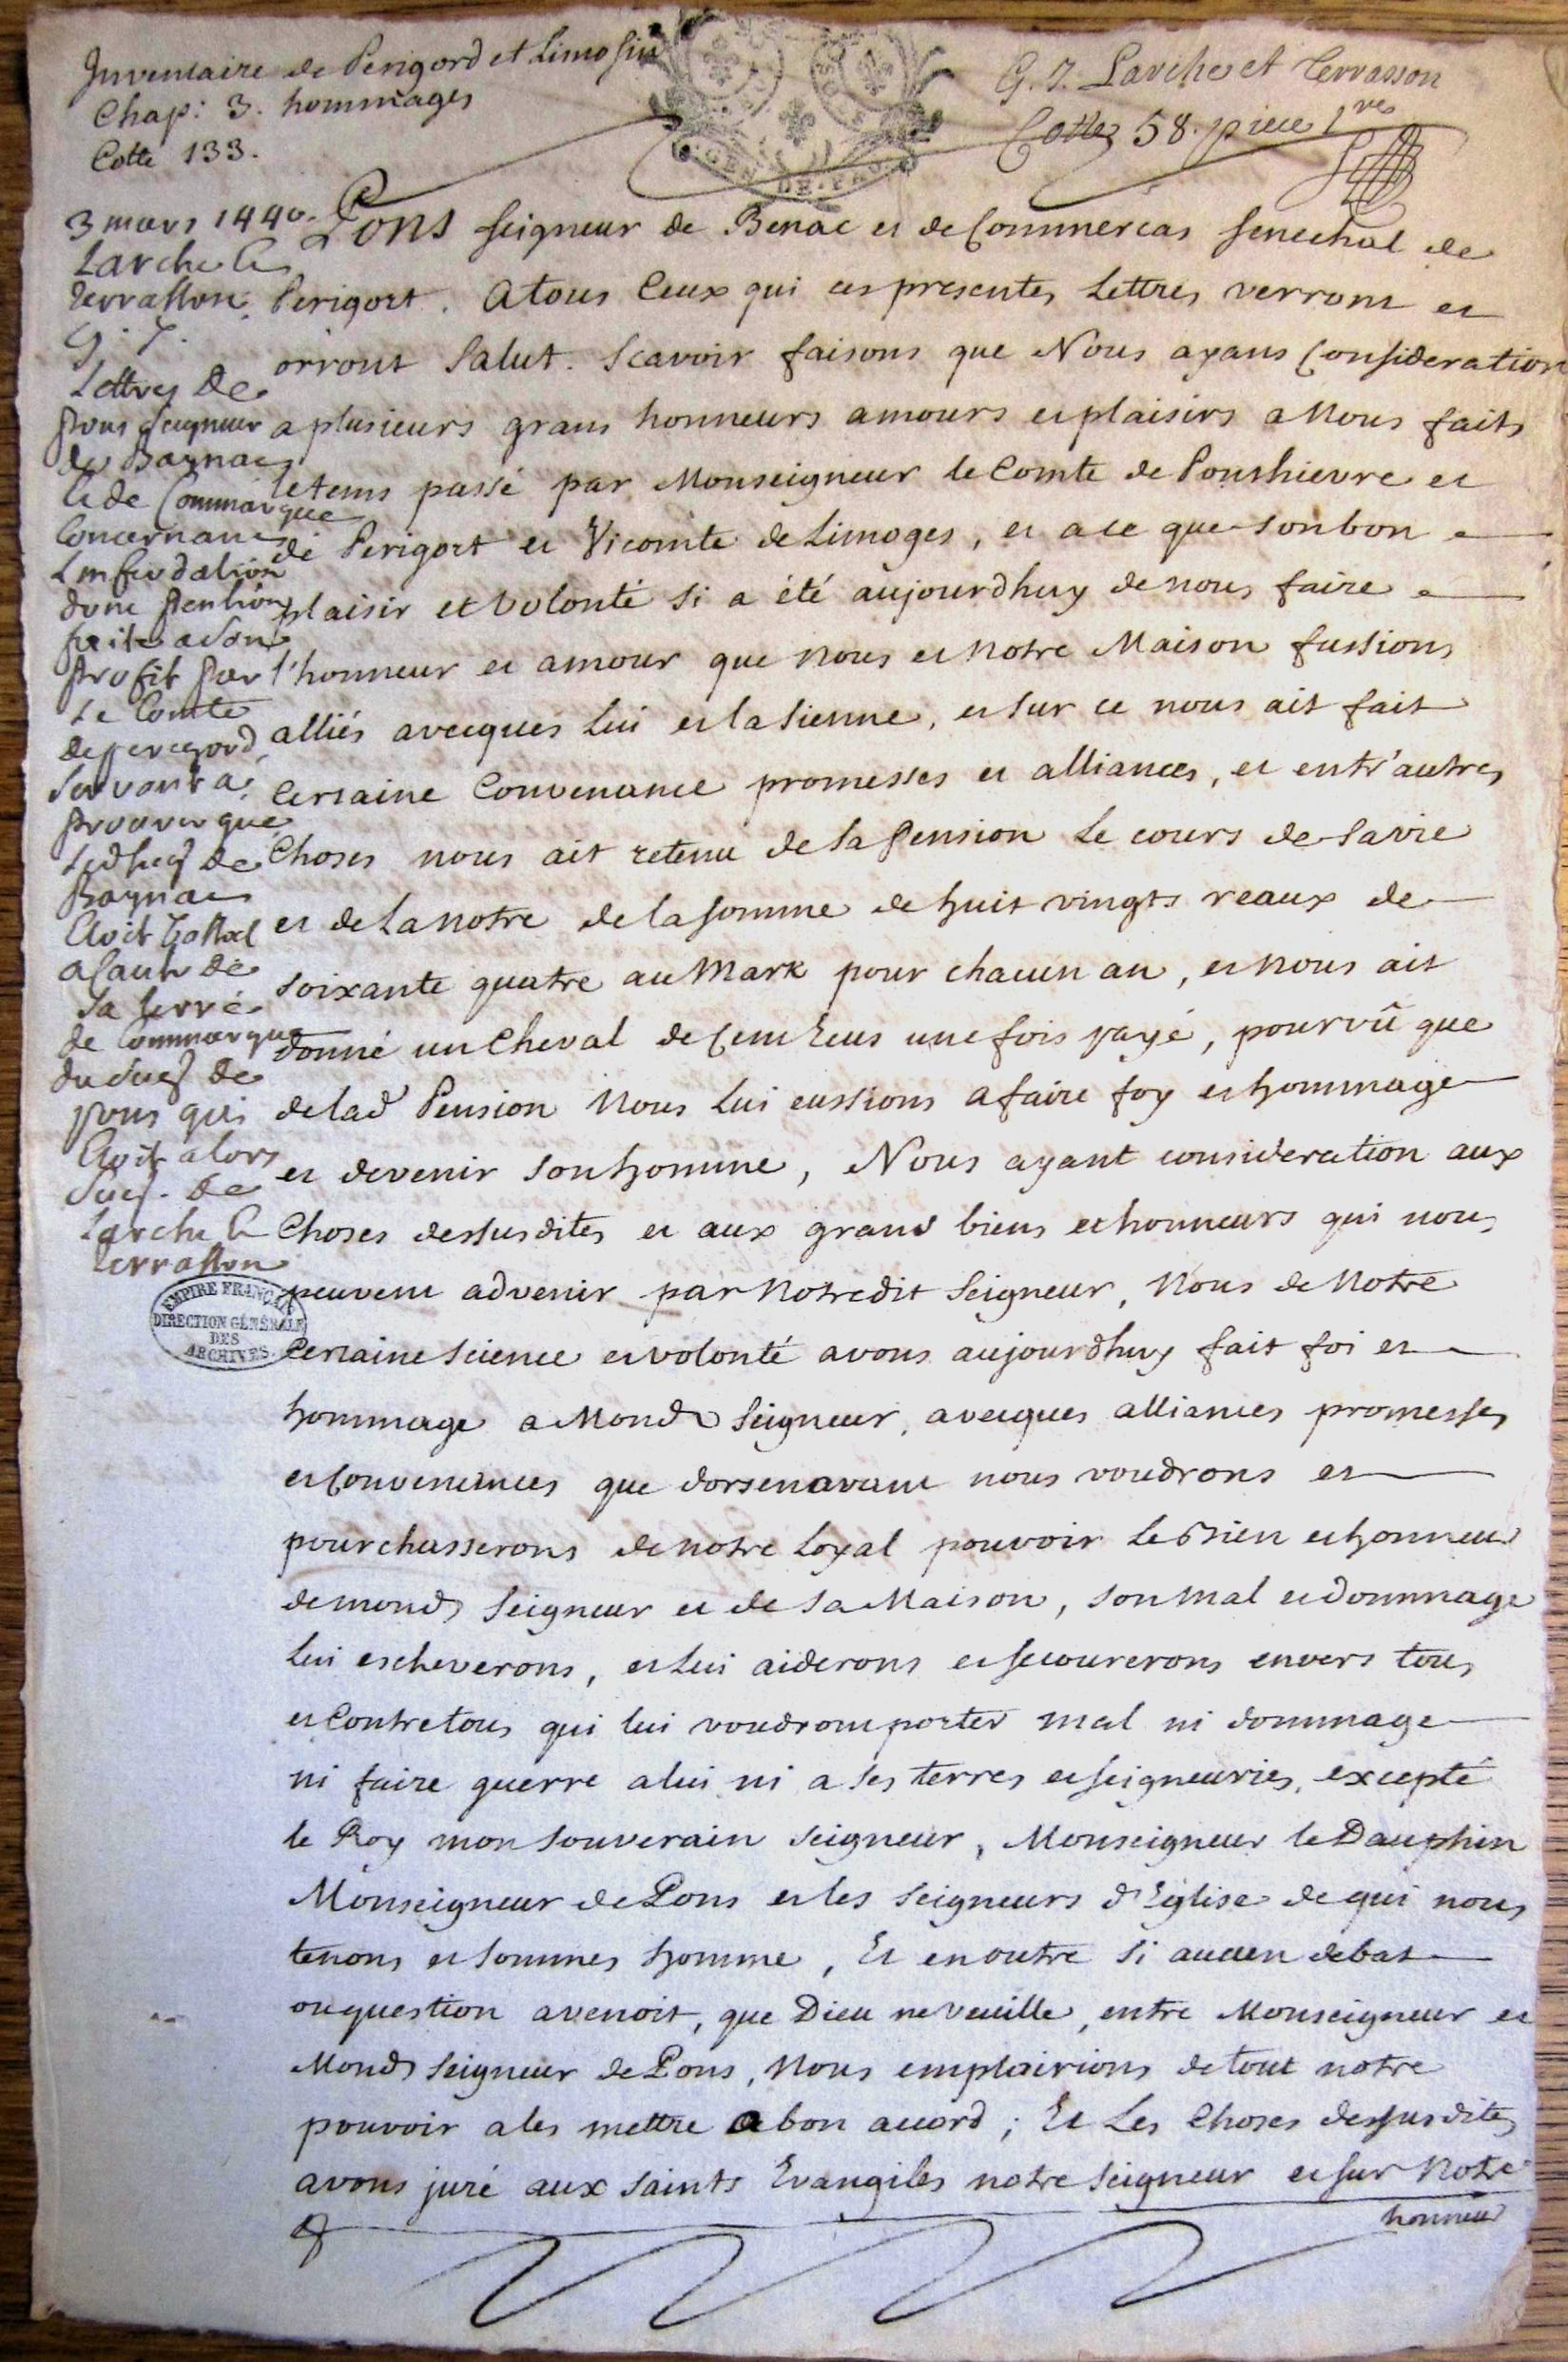 Inventaire de Perigord et Limosin
Chap: 3. hommages
Cotte 133.
G. 7. Larche et Terrasson
Cotte 58. piece 1re
GEN DE
3 mars 1440.
Larche &
Terrasson
G. 7.
Lettres de
pons seigneur
de Baynac
& de Commarque
Concernant
Linfeodation
dune pention
faite a son
profit par
Le Comte
de perigord
servant a
prouver que
Led sieur de
Baynac
avoit
a cause de
sa terre
de Commarque
de
pons qui
avoit alors
de
Larche &
Terrasson
EMPIRE FRANÇAIS
DIRECTION GÉNÉRALE
DES
ARCHIVES
Pons seigneur de Benac et de Commercas senechal de
Perigort. A tous Ceux qui ces presentes Lettres verront et
orront Salut. Scavoir faisons que Nous ayans Consideration
a plusieurs grans honneurs amours et plaisirs a Nous faits
le tems passé par Monseigneur le Comte de Ponthievre et
de Perigort et Vicomte de Limoges, et a ce que son bon
plaisir et volonté si a été aujourdhuy de nous faire
l'honneur et amour que nous et notre Maison fussions
alliés avecques Lui et la sienne, et sur ce nous ait fait
Certaine Convenance promesses et alliances, et entr'autres
Choses nous ait retenu de sa Pension Le cours de sa vie
et de La notre de la somme de huit vingts reaux de
soixante quatre au Mark pour chacun an, et nous ait
donné un Cheval de Cent Ecus une fois payé, pourvû que
de lad Pension Nous Lui eussions a faire foy et hommage
et devenir son homme, Nous ayant consideration aux
Choses dessusdites et aux grans biens et honneurs qui nous
peuvent advenir par Notredit Seigneur, Nous de Notre
Certaine Science et volonté avons aujourdhuy fait foi et
hommage a Mond Seigneur, avecques alliances promesses
et Convenances que dorsenavant nous voudrons et
pourchasserons de notre Loyal pouvoir Le Bien et honneur
de mond Seigneur et de sa Maison, son mal et dommage
Lui escheverons, et Lui aiderons et secourerons envers tous
et Contre tous qui lui voudront porter mal ni dommage
ni faire guerre a lui ni a ses terres et seigneuries, excepté
le Roy mon souverain seigneur, Monseigneur le Dauphin
Monseigneur de Pons et les Seigneurs d'Eglise de qui nous
tenons et sommes homme, Et en outre si aucun debat
ou question avenoit, que Dieu ne veuille, entre Monseigneur et
Mond Seigneur de Pons, Nous emplairions de tout notre
pouvoir a les mettre a bon accord; Et Les Choses dessusdites
avons juré aux Saints Evangiles notre Seigneur et sur Notre
honneur